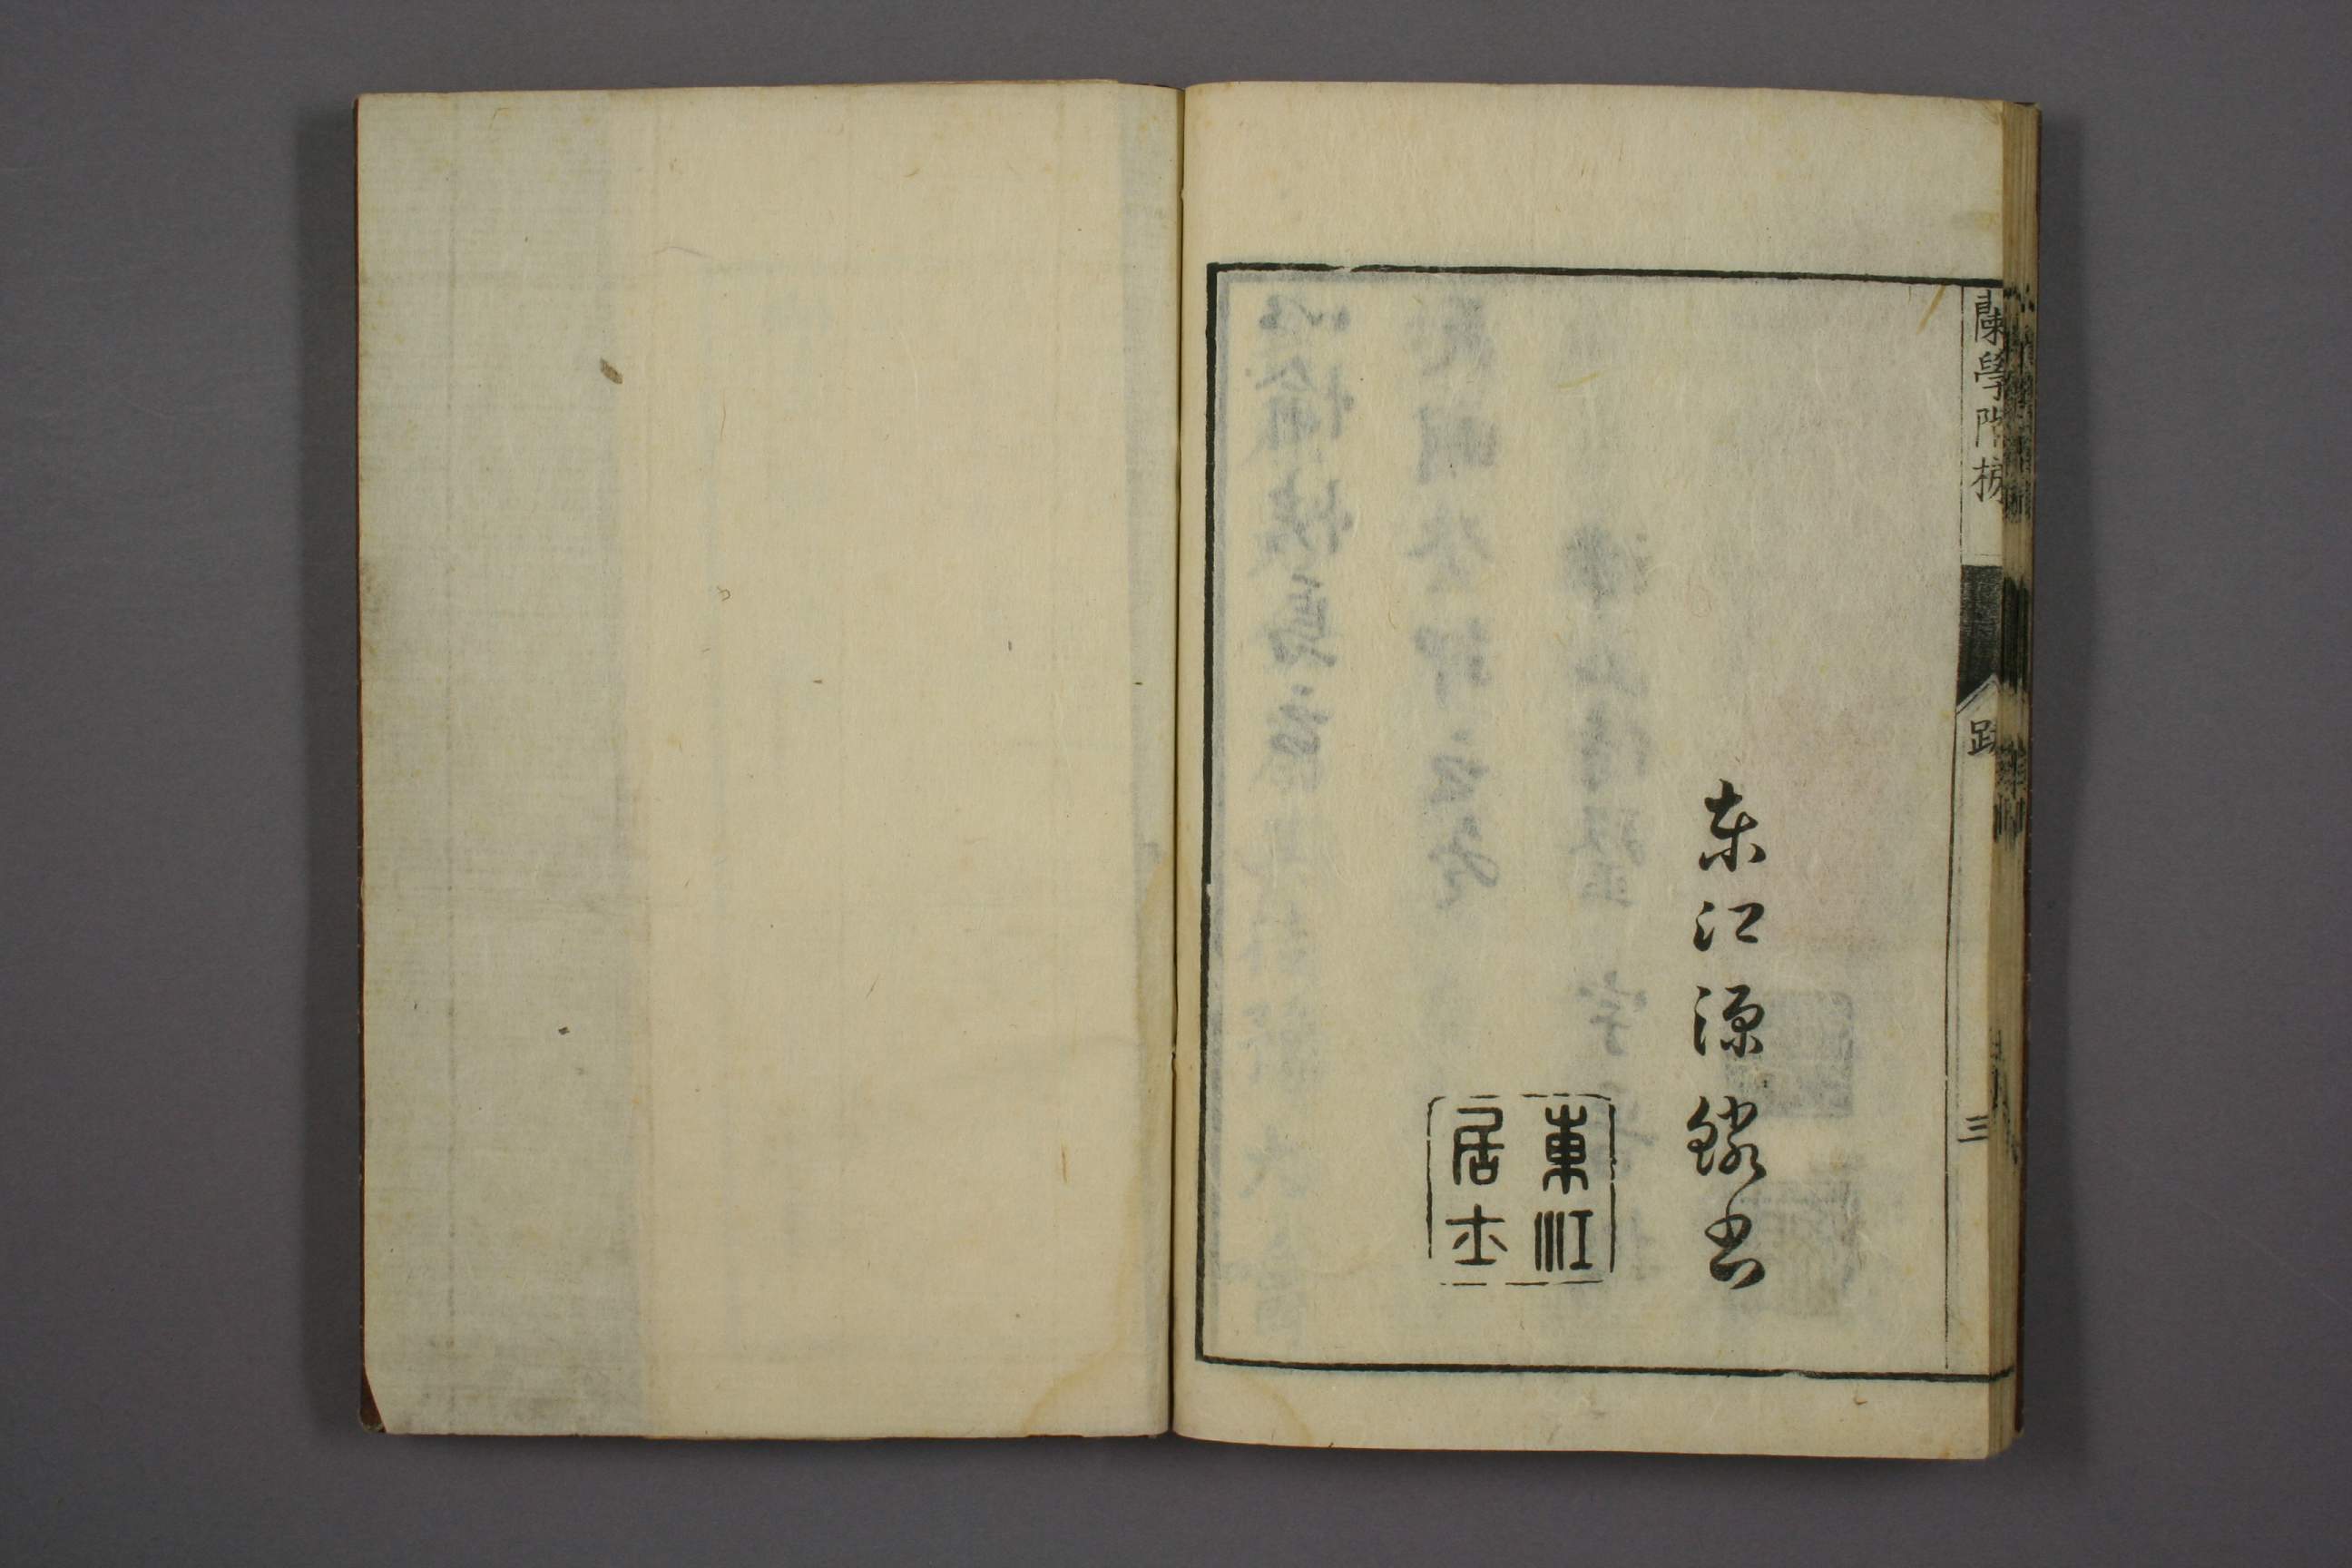 蘭學階梯
跋
三
東江源鱗書
東江
居士